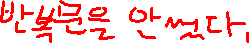 반복문을 안썼다.